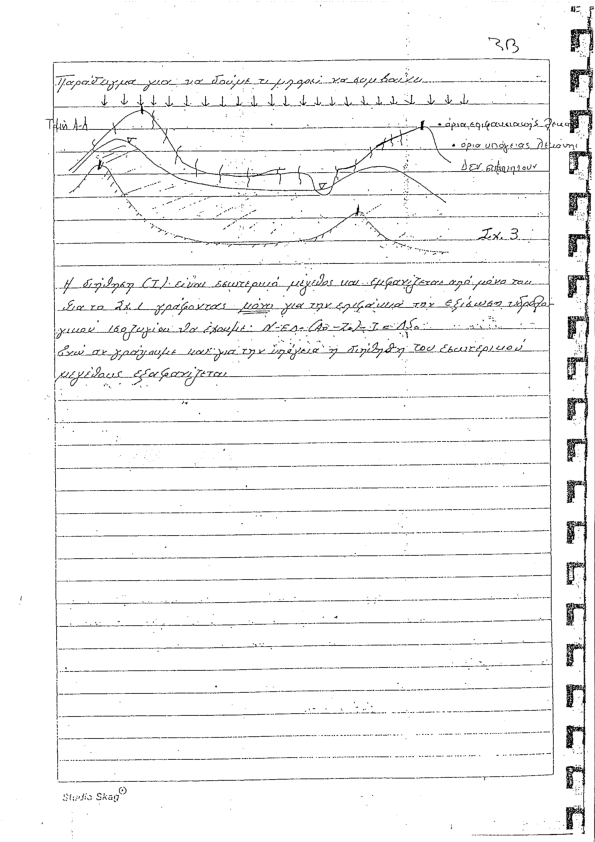 3Β
Παράδειγμα για να δούμε τι μπορεί να συμβαίνει
Τομή Α-Α
• όρια επιφανειακής λεκάνης
• όρια υπόγειας λεκάνης
ΔΕΝ συμπίπτουν
Σχ. 3
Η διήθηση (Ι) είναι εσωτερικό μέγεθος και εμφανίζεται από μόνο του
Για το Σχ. 1 γράφοντας μόνο για την επιφάνεια την εξίσωση υδρολο-
γικού ισοζυγίου θα έχουμε:
Ενώ αν γράψουμε και για την υπόγεια η διήθηση του εσωτερικού
μεγέθους εξαφανίζεται
Studio Skag